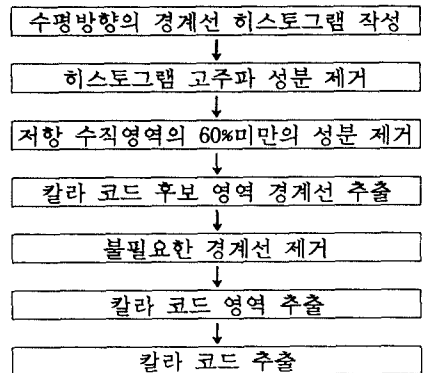 수평방향의 경계선 히스토그램 작성
히스토그램 고주파 성분 제거
저항 수직영역의 60%미만의 성분 제거
칼라 코드 후보 영역 경계선 추출
불필요한 경계선 제거
칼라 코드 영역 추출
칼라 코드 추출